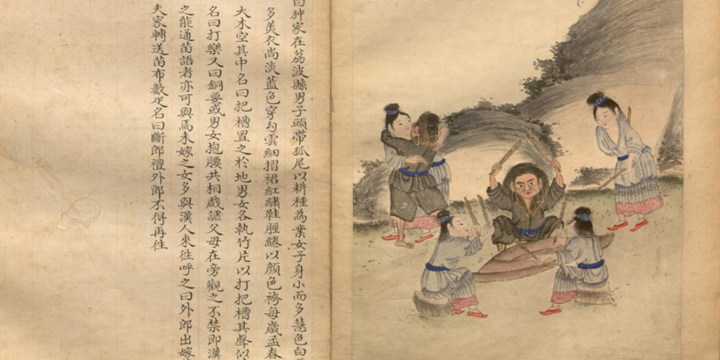 狆家在荔波縣男子頭帶狐尾以耕種為業女子身小而多慧色白
多美衣尚淡藍色穿勾雲細摺裙紅繡鞋脛纏以顏色袴每歲孟春
大木空其中名曰把槽置之於地男女各執竹片以打把槽其聲似
名曰打樂又曰銅或男女抱腰共相戲謔父母在旁觀之不禁即漢
之能通苗語者亦可與焉未嫁之女多與漢人來往呼之曰外郎出嫁
夫家轉送苗布數疋名曰斷郎禮外郎不得再往